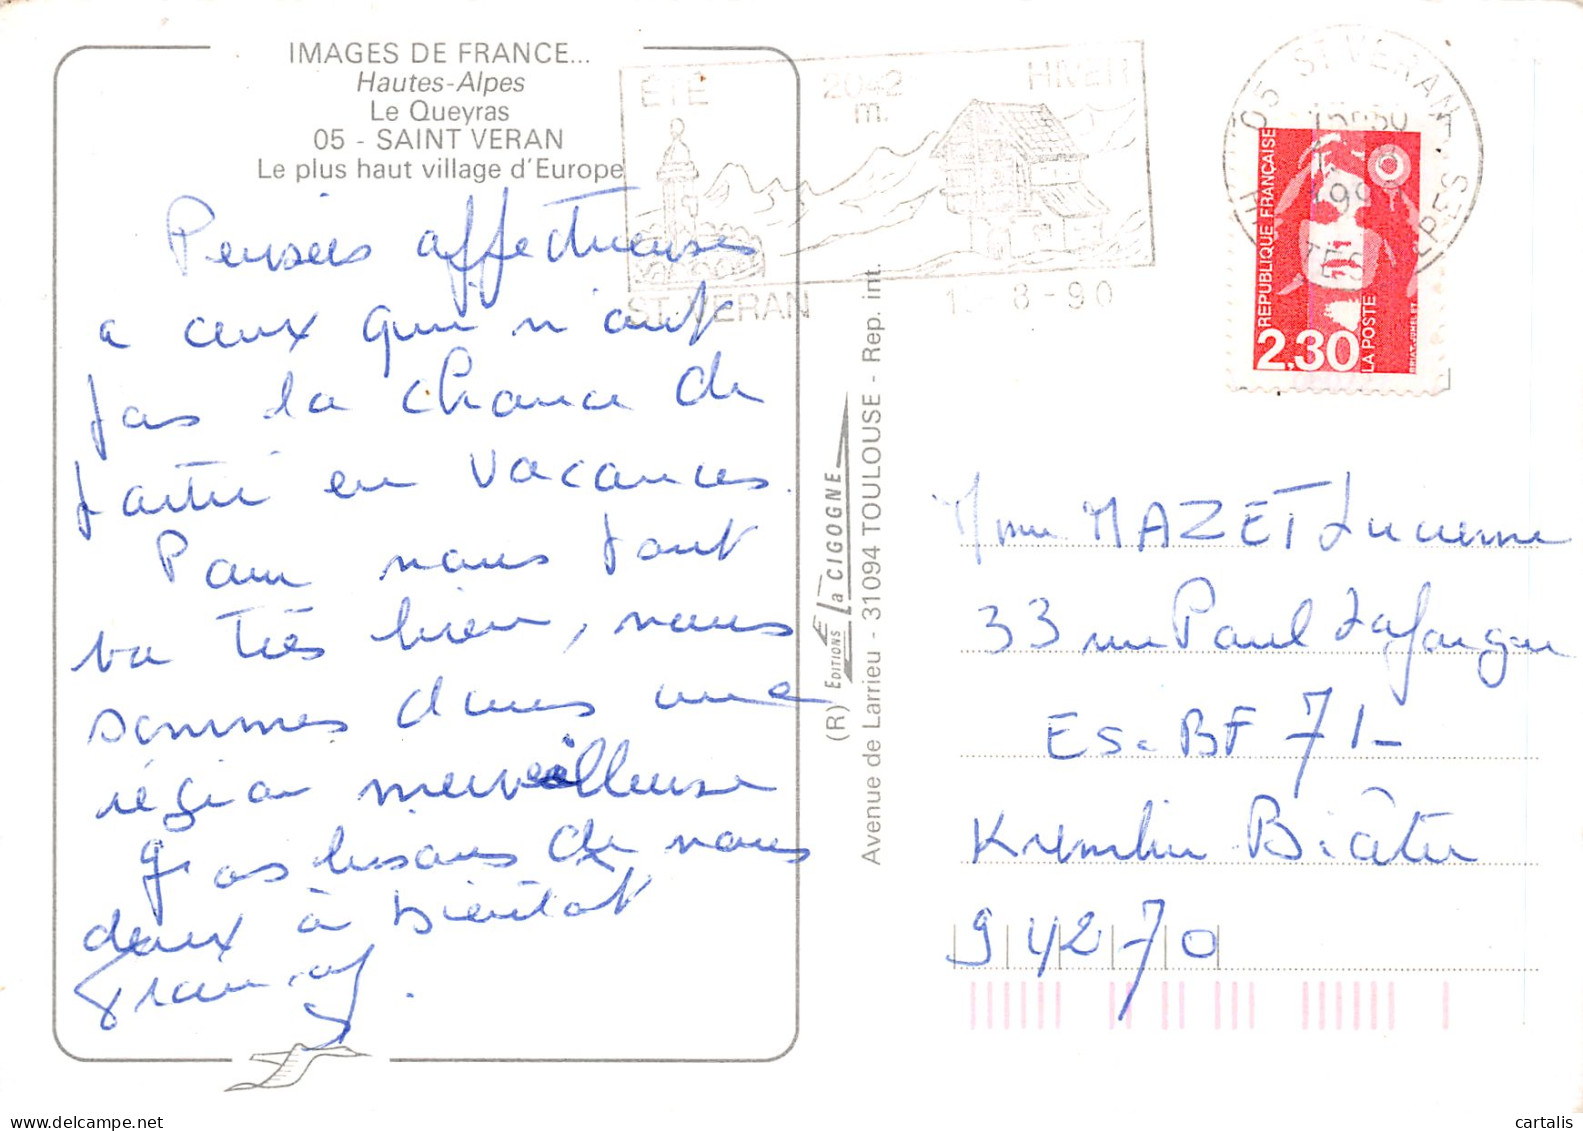 IMAGES DE FRANCE...
Hautes-Alpes
Le Queyras
05 - SAINT VERAN
Le plus haut village d'Europe
Pensées affectueuses
a ceux qui n'ont
pas la chance de
partir en vacances.
Pour nous tout
va très bien, nous
sommes dans une
région merveilleuse
gros bisous de nous
deux à bientôt
ÉTÉ 2042 m. HIVER
ST-VERAN
8-90
05 ST VERAN
HTES ALPES
REPUBLIQUE FRANÇAISE
LA POSTE
2,30
(R) EDITIONS La CIGOGNE
Avenue de Larrieu - 31094 TOULOUSE - Rep. int.
Mme MAZET Lucienne
33 rue Paul Lafargue
Esc BF 71-
Kremlin Bicâtre
94270
cartalis